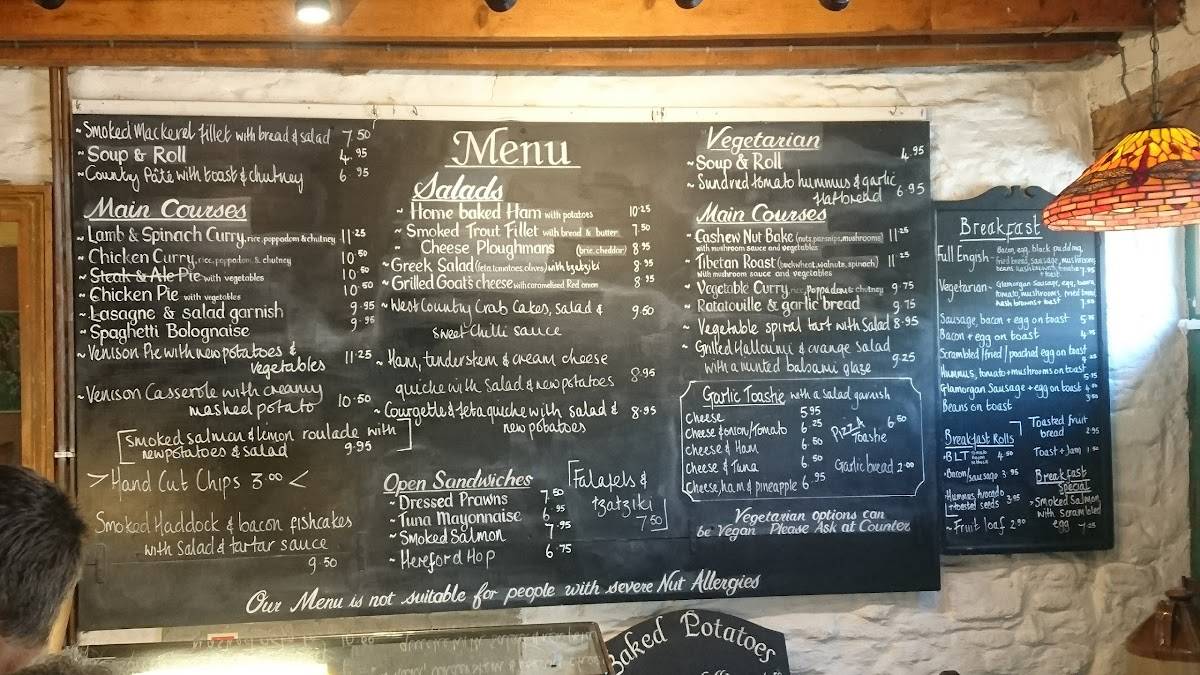 ~Smoked Mackerel fillet with bread & salad 7.50
~Soup & Roll 4.95
~Country Pâté with toast & chutney 6.95
Main Courses
~Lamb & Spinach Curry, rice, poppadom & chutney 11.25
~Chicken Curry, rice, poppadom, & chutney 10.50
~Steak & Ale Pie with vegetables 10.50
~Chicken Pie with vegetables 10.50
~Lasagne & salad garnish 9.95
~Spaghetti Bolognaise 9.95
~Venison Pie with new potatoes &
vegetables 11.25
~Venison Casserole with creamy
mashed potato 10.50
Smoked salmon & limon roulade with
new potatoes & salad 9.95
>Hand Cut Chips 3.00<
Smoked Haddock & bacon fishcakes
with Salad & tartar sauce
9.50
Menu
Salads
~Home baked Ham with potatoes 10.25
~Smoked Trout Fillet with bread & butter 7.50
~Cheese Ploughmans (brie, cheddar) 8.95
~Greek Salad (feta, tomatoes, olives) with tzatziki 8.95
~Grilled Goat's cheese with caramelised Red onion 8.95
~West Country Crab Cakes, salad & 9.50
sweet chilli sauce
~Ham, tenderstem & cream cheese
quiche with Salad & new potatoes 8.95
~Courgette & feta quiche with salad & 8.95
new potatoes
Open Sandwiches
~Dressed Prawns 7.50
~Tuna Mayonnaise 6.95
~Smoked Salmon 7.95
~Hereford Hop 6.75
Falafels &
tzatziki
7.50
Vegetarian
~Soup & Roll 4.95
~Sundried tomato hummus & garlic
flatbread 6.95
Main Courses
~Cashew Nut Bake (nuts, parsnips, mushrooms) 11.25
with mushroom sauce and vegetables
~Tibetan Roast (buckwheat, walnuts, spinach) 11.25
with mushroom sauce and vegetables
~Vegetable Curry, rice, Poppadom & chutney 9.75
~Ratatouille & garlic bread 9.75
~Vegetable spiral tart with Salad 8.95
~Grilled Halloumi & orange Salad
with a minted balsamic glaze 9.25
Garlic Toastie with a salad garnish
Cheese 5.95
Cheese & onion/Tomato 6.25
Cheese & Ham 6.50
Cheese & Tuna 6.50
Cheese, ham & pineapple 6.95
Pizza
Toastie 6.50
Garlic bread 2.00
Vegetarian options can
be Vegan Please Ask at Counter
Our Menu is not suitable for people with severe Nut Allergies
Breakfast
Full Engish~ Bacon, egg, black pudding,
fried bread, sausage, mushrooms
beans, toast 7.95
Vegetarian~ Glamorgan Sausage, egg, beans,
tomato, mushrooms, fried bread
hash browns + toast
Sausage, bacon + egg on toast
Bacon + egg on toast
Scrambled/fried/poached egg on toast
Hummus, tomato + mushrooms on toast
Glamorgan Sausage + egg on toast
Beans on toast
Breakfast Rolls
~BLT 4.50
~Bacon/
Sausage 3.95
~Hummus, Avocado
+ toasted seeds 3.95
~Fruit loaf 2.90
Toasted fruit
bread 2.95
Toast + Jam 1.50
Breakfast
Special
>Smoked Salmon
with scrambled
egg 7.25
Baked Potatoes